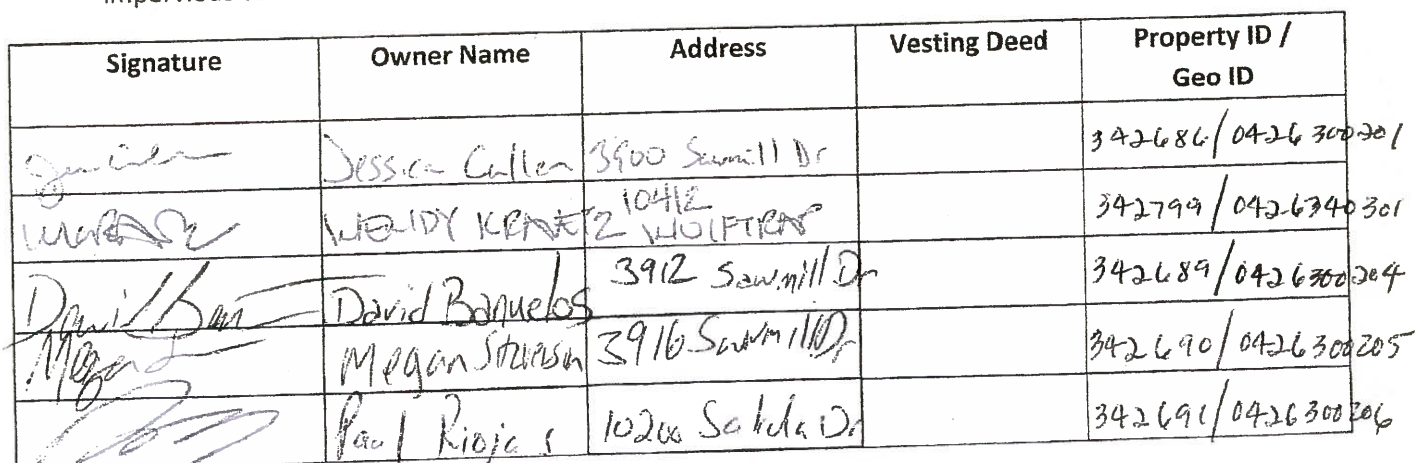 Signature Owner Name Address Vesting Deed Property ID /
Geo ID
Jessica Cullen 3900 Sawmill Dr 342686/0426300201
WENDY KRAETZ 10412 WOLFTRAP 342799/0426340301
David Banuelos 3912 Sawmill Dr 342689/0426300204
Megan Stevenson 3916 Sawmill Dr 342690/0426300205
Paul Riojas Dr 342691/0426300206